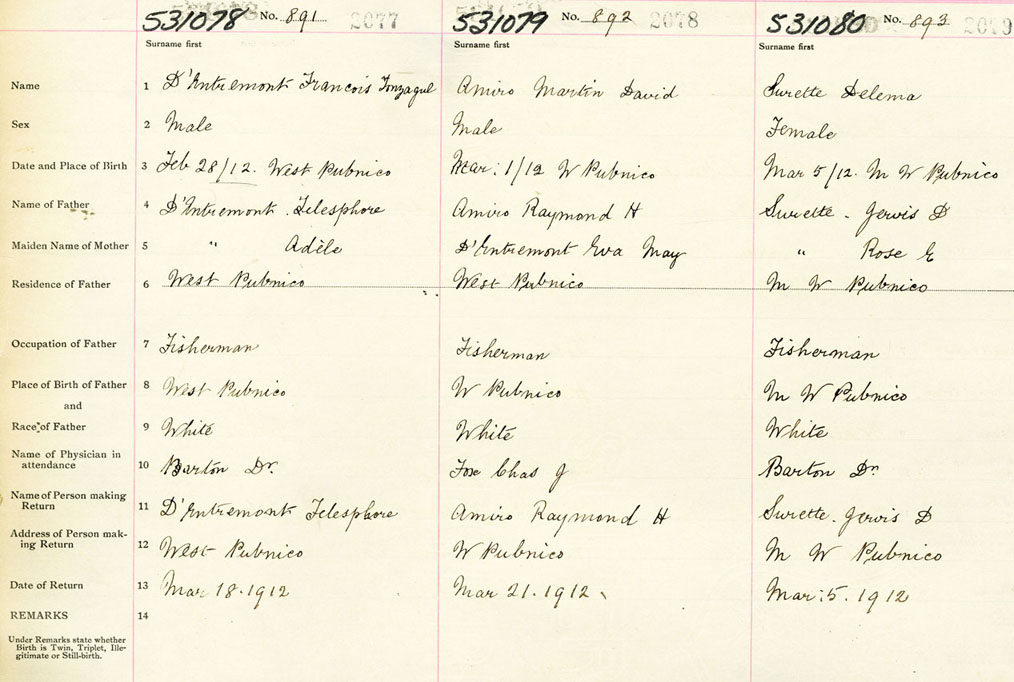 531078 No. 891 2077 531079 No. 892 2078 531080 No. 893 2079
Surname first Surname first Surname first
Name 1 D'Entremont Francois Gonzague Amiro Martin David Surette Delema
Sex 2 Male Male Female
Date and Place of Birth 3 Feb 28/12. West Pubnico Mar: 1/12 W Pubnico Mar 5/12. M W Pubnico
Name of Father 4 D'Entremont. Telesphore Amiro Raymond H Surette. Gervis D
Maiden Name of Mother 5 " Adèle D'Entremont Eva May " Rose E
Residence of Father 6 West Pubnico West Pubnico M W Pubnico
Occupation of Father 7 Fisherman Fisherman Fisherman
Place of Birth of Father 8 West Pubnico W Pubnico M W Pubnico
and
Race of Father 9 White White White
Name of Physician in
attendance 10 Barton Dr. Fox Chas J Barton Dr
Name of Person making
Return 11 D'Entremont Telesphore Amiro Raymond H Surette. Gervis D
Address of Person mak-
ing Return 12 West Pubnico W Pubnico M W Pubnico
Date of Return 13 Mar 18.1912 Mar 21.1912 Mar: 5. 1912
REMARKS 14
Under Remarks state whether
Birth is Twin, Triplet, Ille-
gitimate or Still-birth.